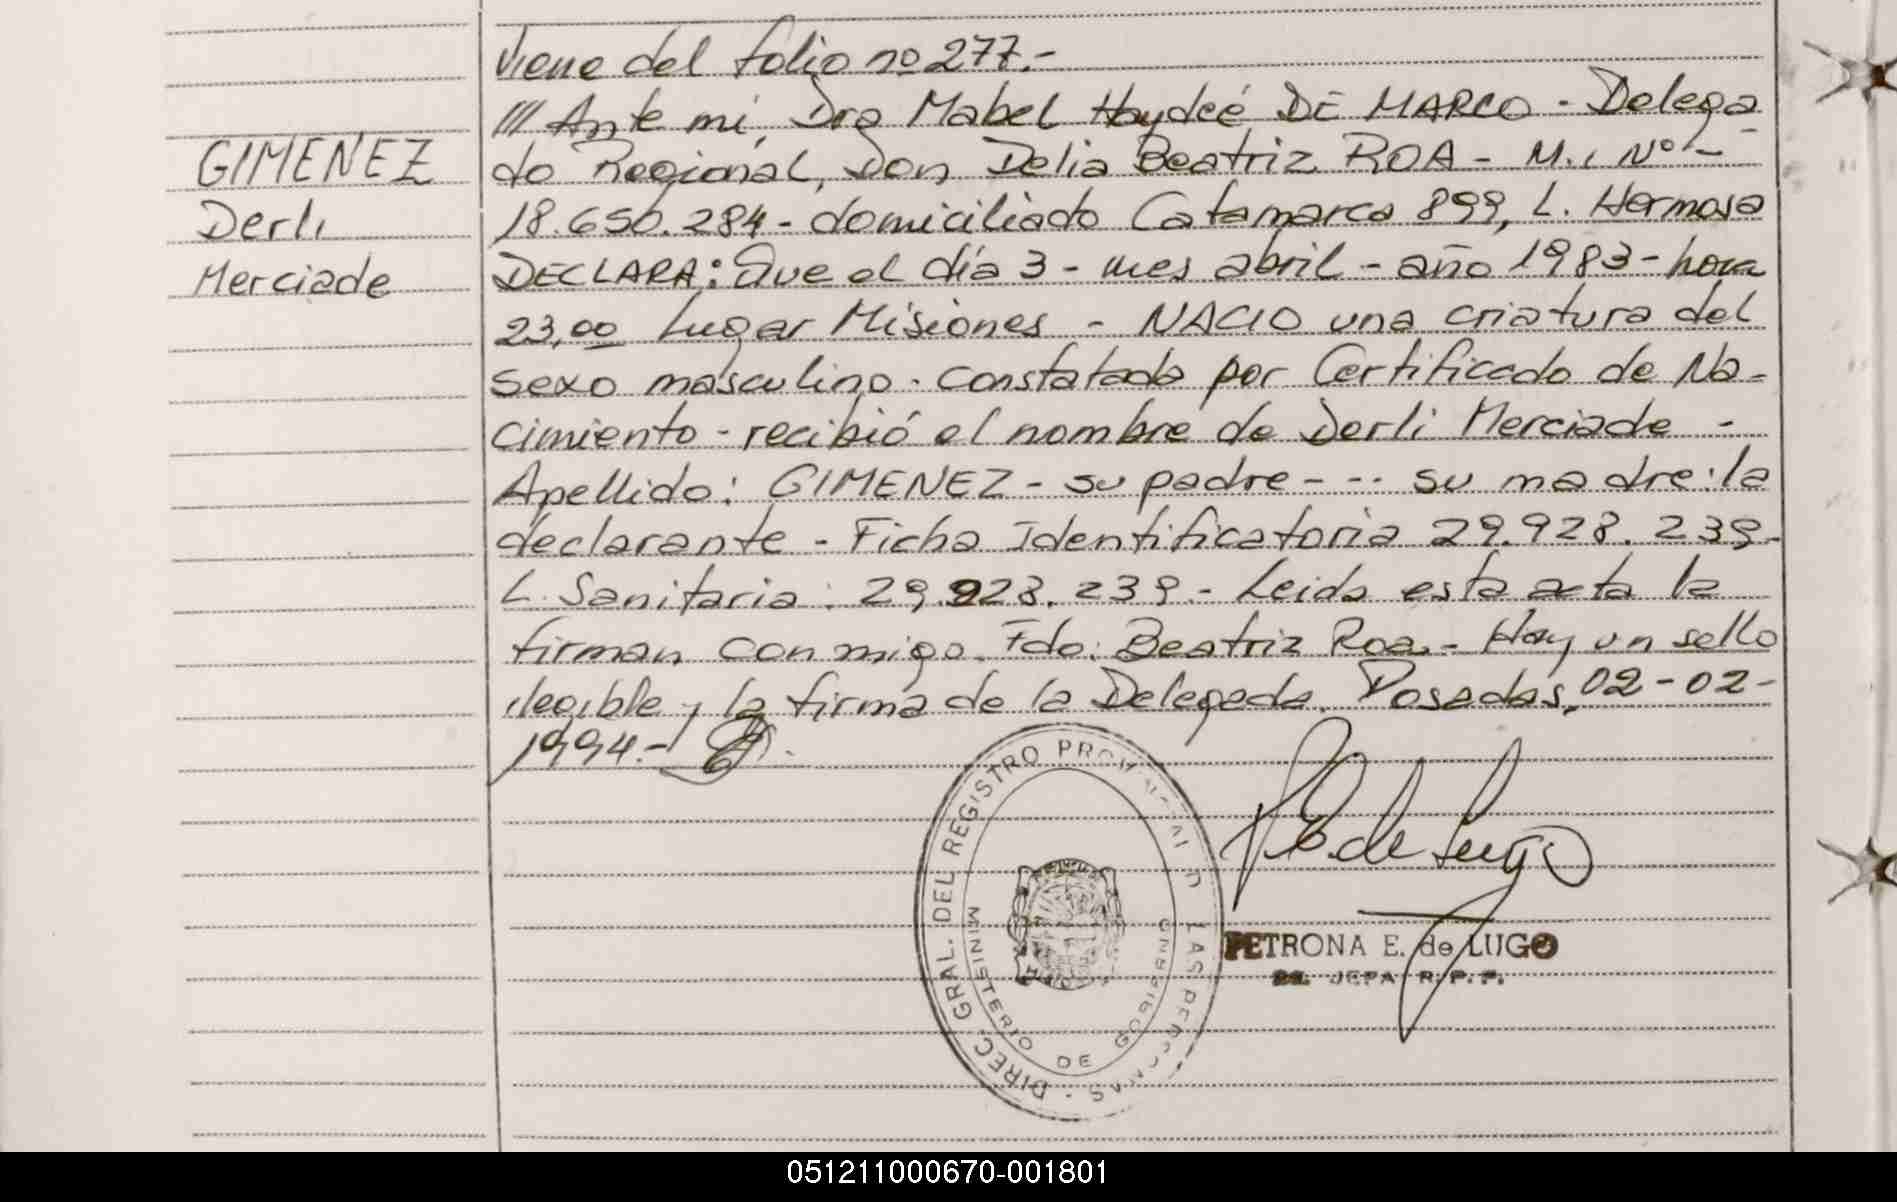 Viene del folio nº 277.-
/// Ante mi, Dra Mabel Haydeé DE MARCO - Delega
GIMENEZ
do Regional, Don Delia Beatriz ROA - M.I. Nº -
Derli
18.650.284 - domiciliado Catamarca 899, L. Hermosa
Merciade
DECLARA: Que el día 3 - mes abril - año 1983 - hora
23,00 Lugar Misiones - NACIO una criatura del
sexo masculino. constatado por Certificado de Na-
cimiento - recibió el nombre de Derli Merciade -
Apellido: GIMENEZ - su padre - -- su madre: la
declarante - Ficha Identificatoria 29.928.239-
L. Sanitaria: 29.928.239.- Leida esta acta la
firman conmigo. Fdo: Beatriz Roa.- Hay un sello
ilegible y la firma de la Delegada. Posadas, 02-02-
1994.-
DIREC. GRAL. DEL REGISTRO PROVINCIAL D LAS PERSONAS
MINISTERIO DE GOBIERNO
PE de Lugo
PETRONA E. de LUGO
JEFA R.P.P.
051211000670-001801